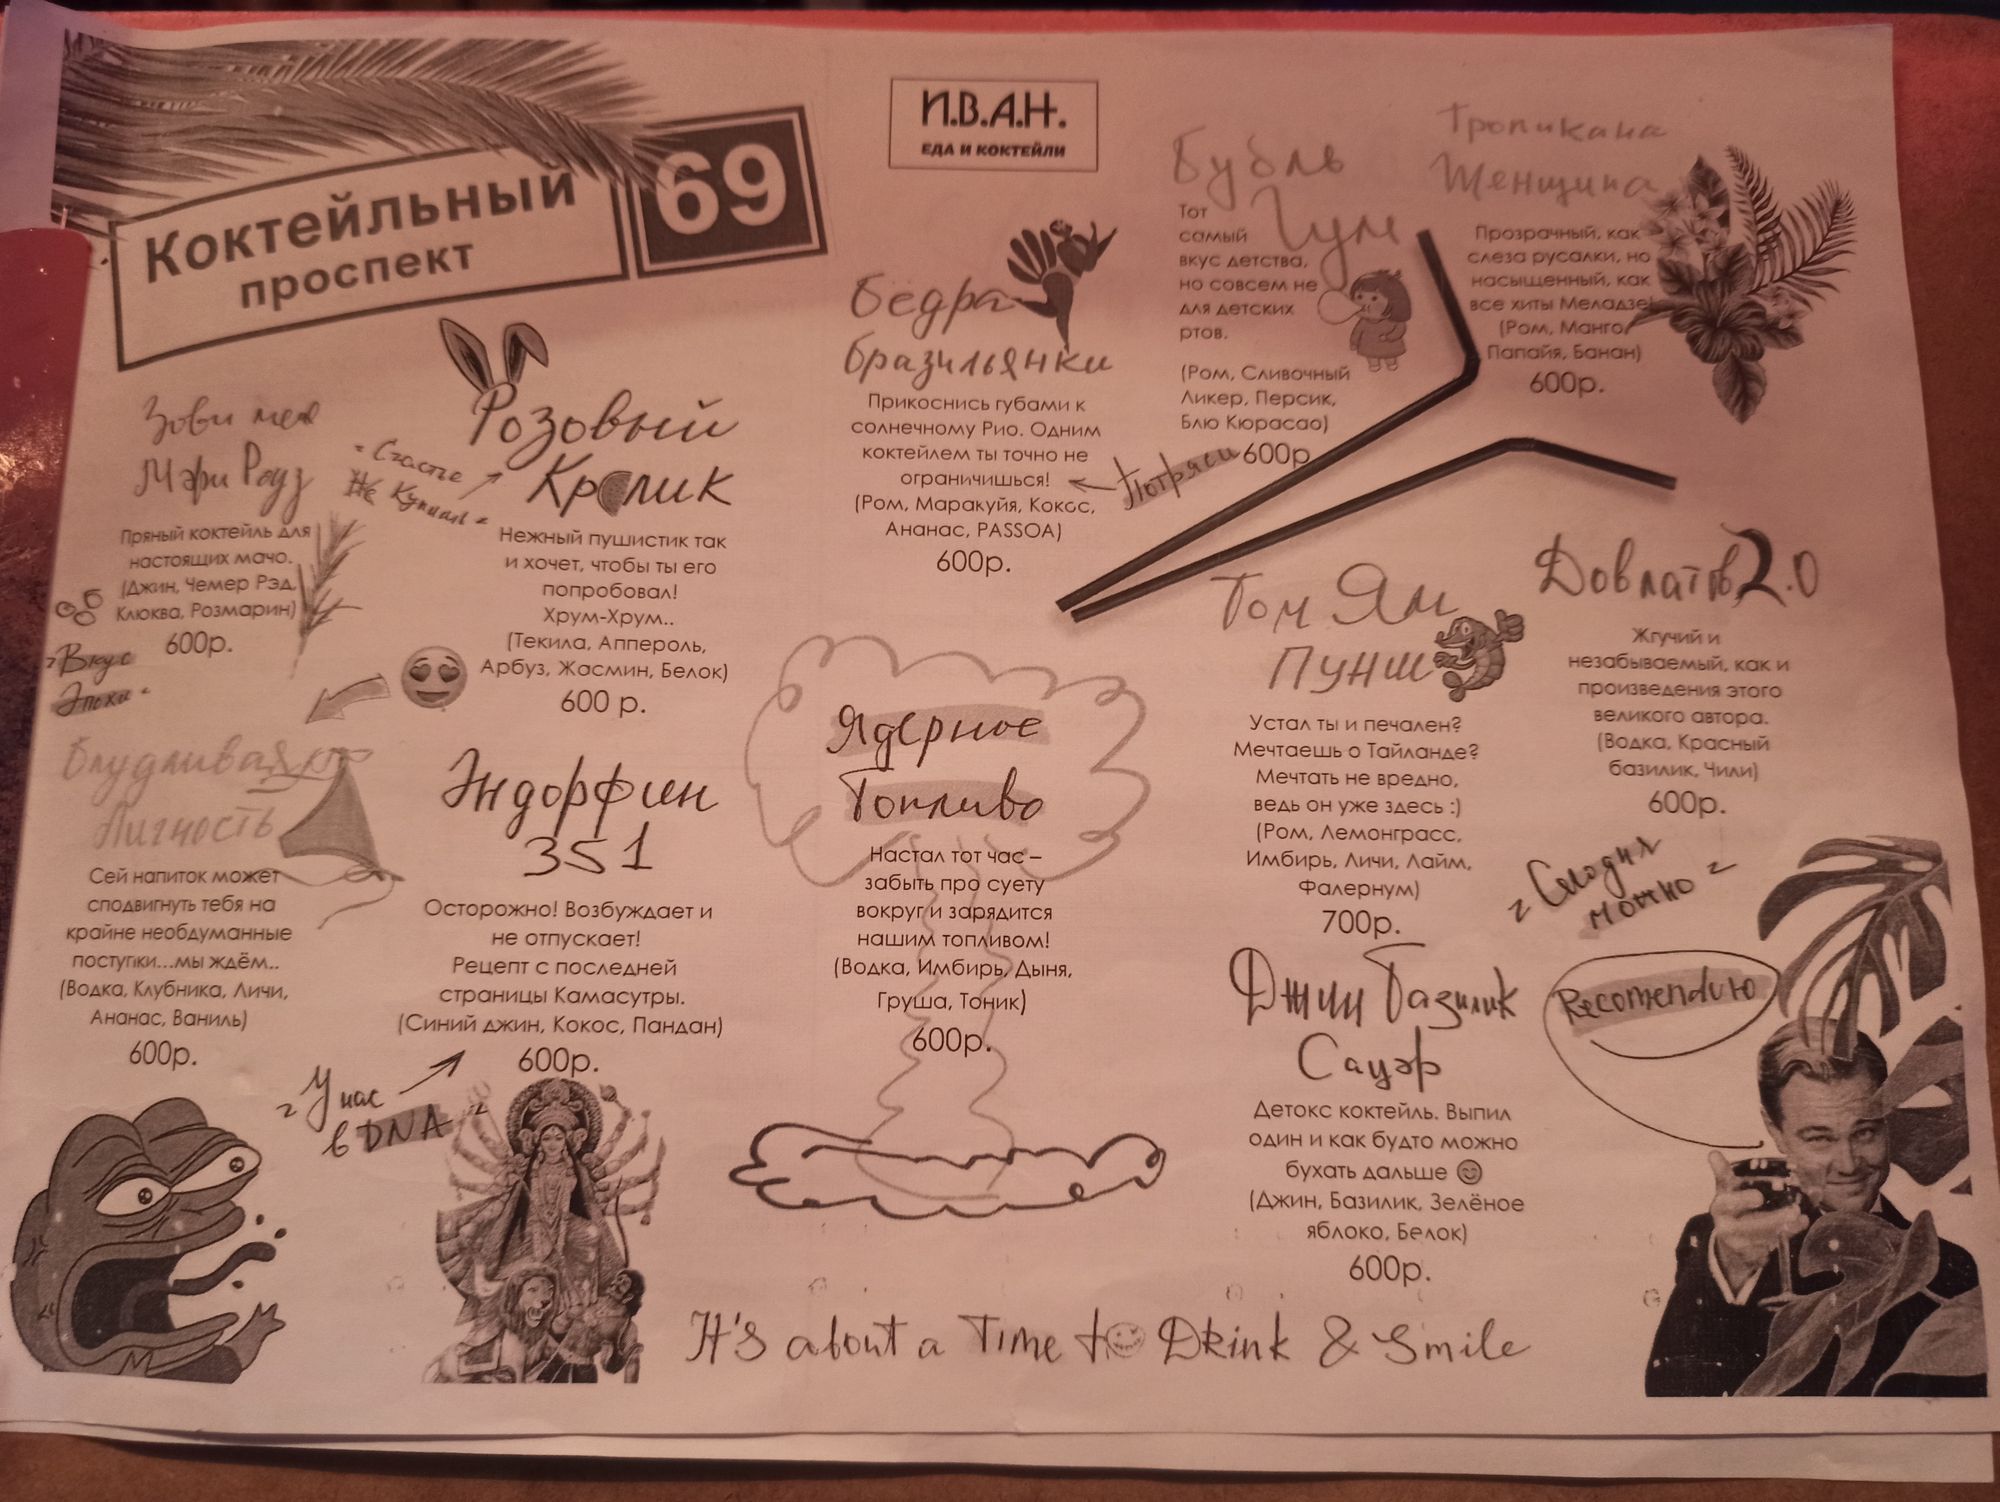 Коктейльный
проспект
69
И.В.А.Н.
ЕДА И КОКТЕЙЛИ
Зови меня
Мэри Роуз
Пряный коктейль для
настоящих мачо.
(Джин, Чемер Рэд,
Клюква, Розмарин)
600р.
Вкус
Эпохи
Счастье
Не Купишь
Розовый
Кролик
Нежный пушистик так
и хочет, чтобы ты его
попробовал!
Хрум-Хрум..
(Текила, Аппероль,
Арбуз, Жасмин, Белок)
600 р.
Бёдра
бразильянки
Прикоснись губами к
солнечному Рио. Одним
коктейлем ты точно не
ограничишься!
(Ром, Маракуйя, Кокос,
Ананас, PASSOA)
600р.
Потряси
Бубль
Гум
Тот
самый
вкус детства,
но совсем не
для детских
ртов.
(Ром, Сливочный
Ликер, Персик,
Блю Кюрасао)
600р
Тропикана
Женщина
Прозрачный, как
слеза русалки, но
насыщенный, как
все хиты Меладзе!
(Ром, Манго,
Папайя, Банан)
600р.
Блудливая
Личность
Сей напиток может
сподвигнуть тебя на
крайне необдуманные
поступки...мы ждём..
(Водка, Клубника, Личи,
Ананас, Ваниль)
600р.
Эндорфин
351
Осторожно! Возбуждает и
не отпускает!
Рецепт с последней
страницы Камасутры.
(Синий джин, Кокос, Пандан)
600р.
У нас
в DNA
Ядерное
Топливо
Настал тот час –
забыть про суету
вокруг и зарядится
нашим топливом!
(Водка, Имбирь, Дыня,
Груша, Тоник)
600р.
Том Ям
Пунш
Устал ты и печален?
Мечтаешь о Тайланде?
Мечтать не вредно,
ведь он уже здесь :)
(Ром, Лемонграсс,
Имбирь, Личи, Лайм,
Фалернум)
700р.
Довлатов 2.0
Жгучий и
незабываемый, как и
произведения этого
великого автора.
(Водка, Красный
базилик, Чили)
600р.
Сегодня
можно
Джин Базилик
Сауэр
Детокс коктейль. Выпил
один и как будто можно
бухать дальше 😊
(Джин, Базилик, Зелёное
яблоко, Белок)
600р.
Recomenduю
It's about a Time to Drink & Smile